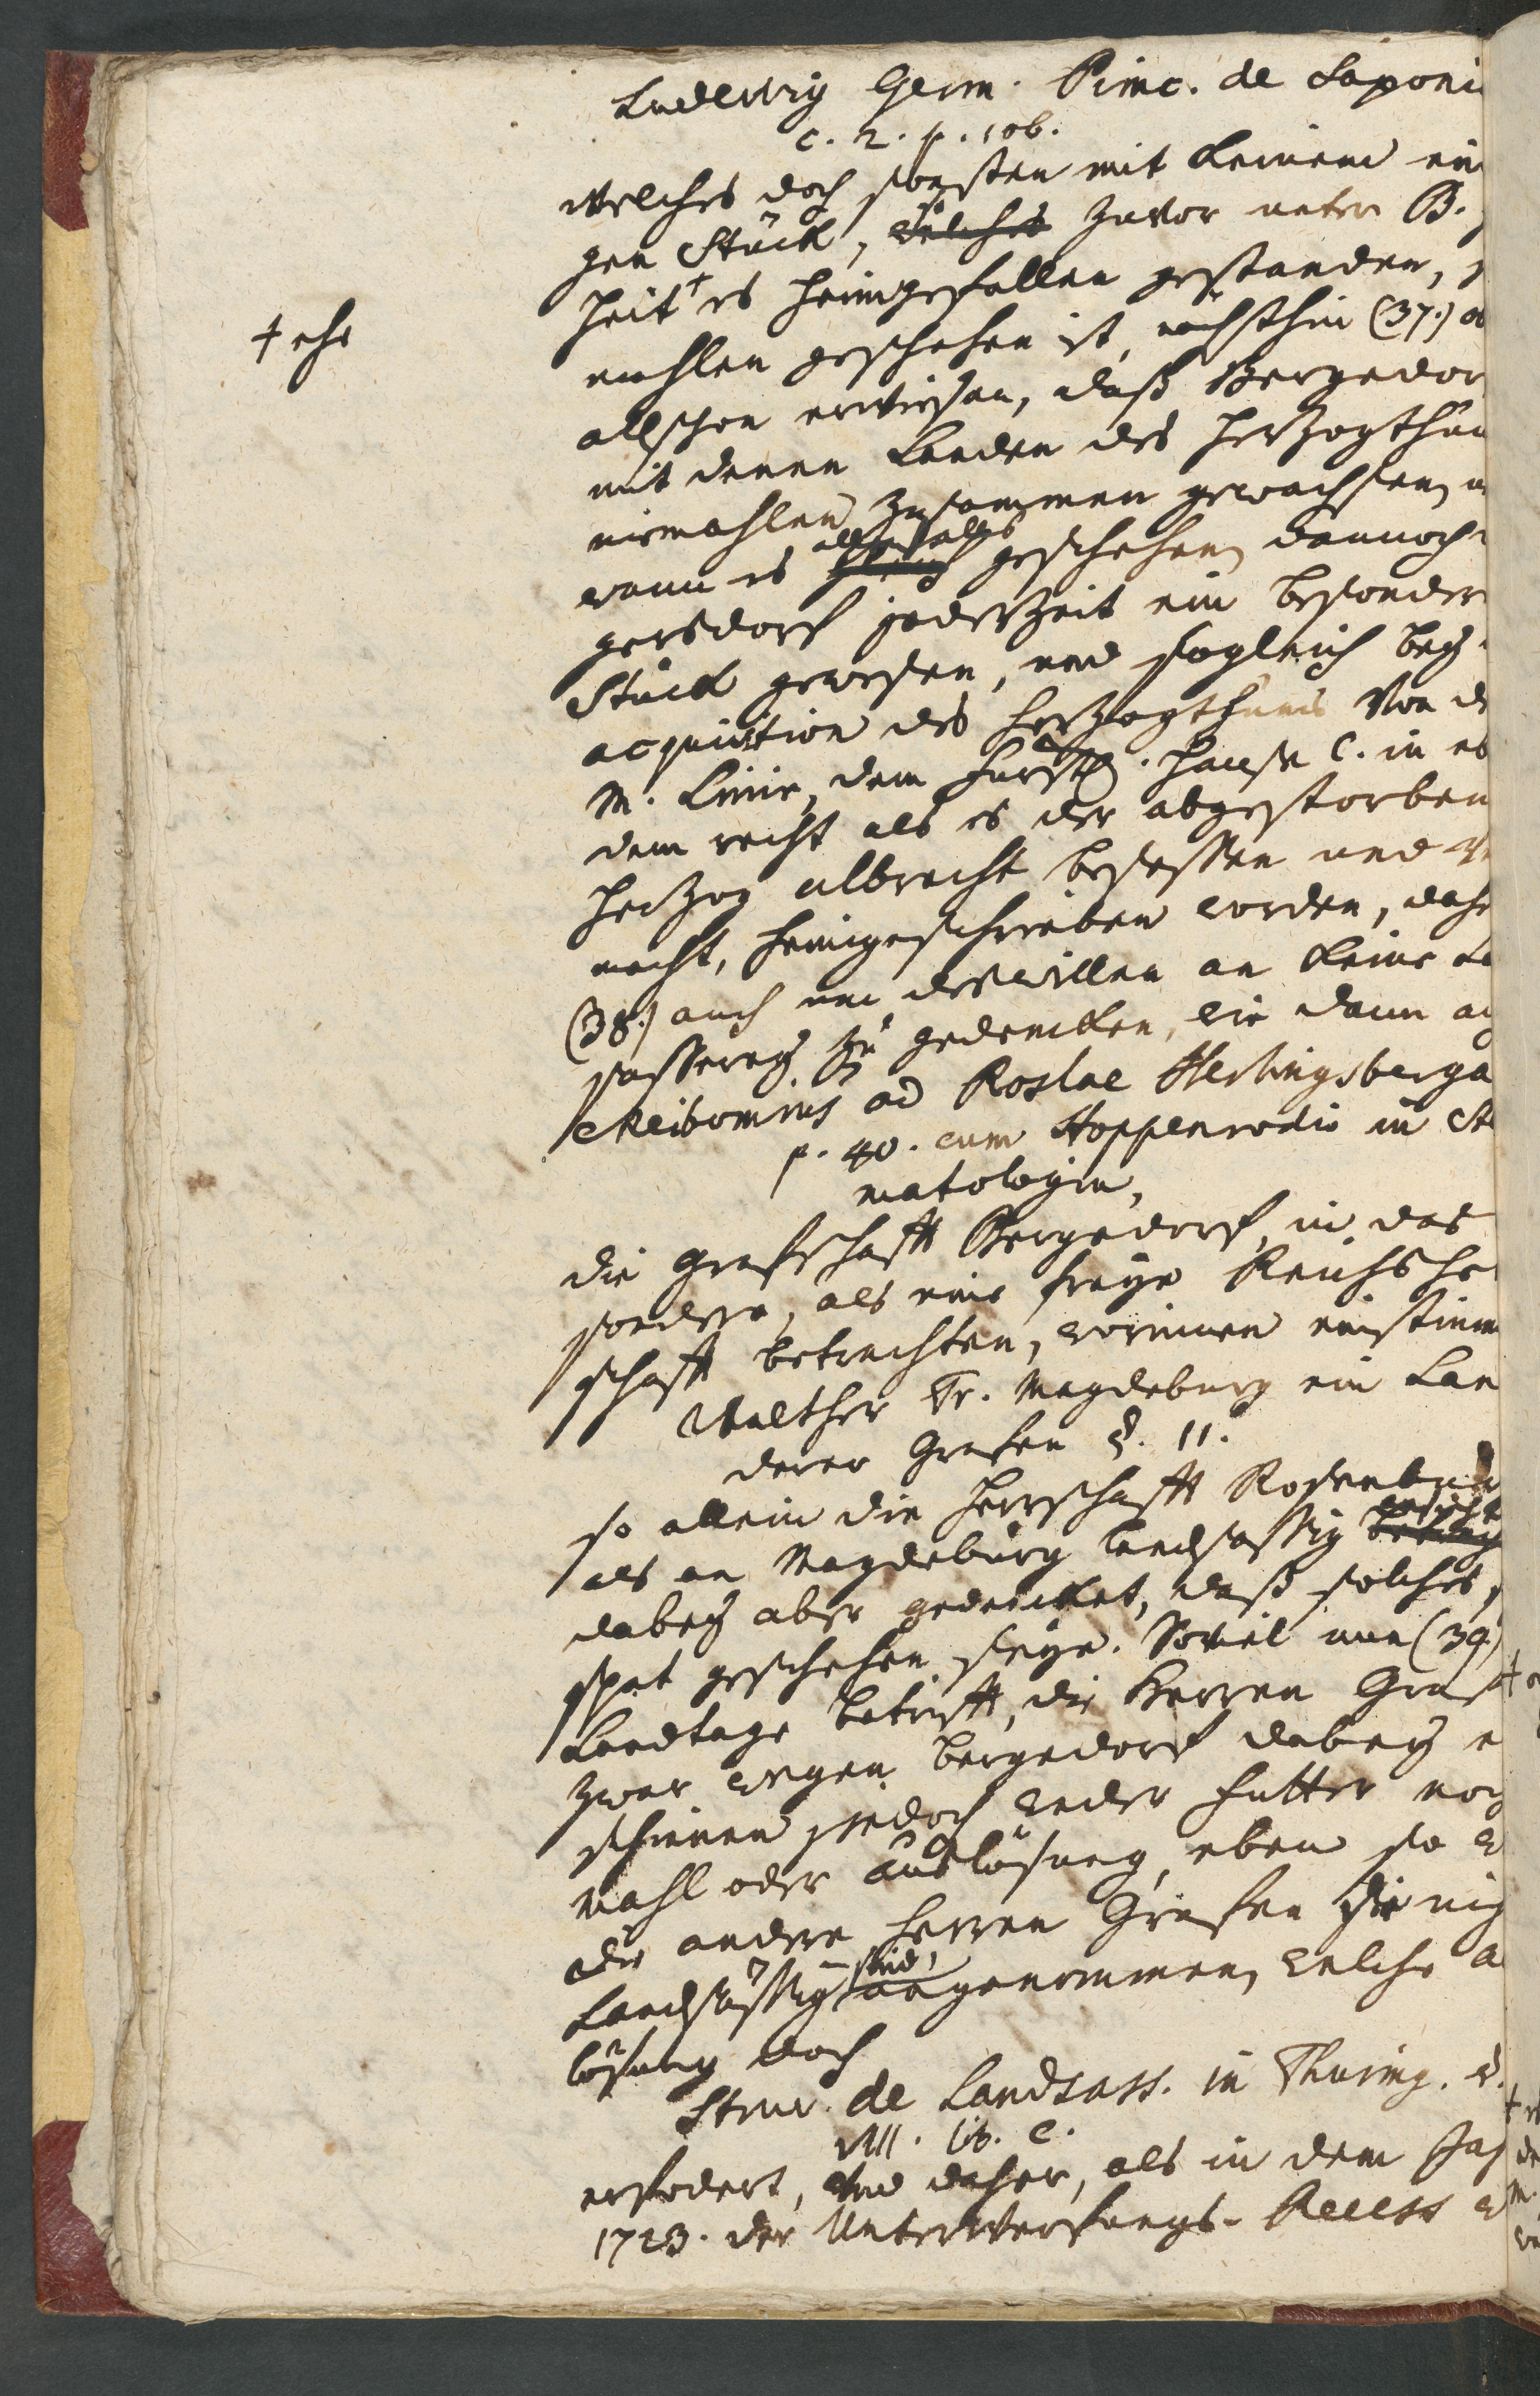 Ludewig Germ. Princ. de Saxoni
c. 2. p. 106.
welches doch sonsten mit keinem eini
gen Stück, so welches zuvor unter B.
heit + es heimgefallen gestanden,
+ ehe
mahlen geschehen ist, nächsthin (37.)
allschon erwiesen, daß Bergedor
mit denen Landen des Hertzogthum
niemahlen zusammen gewachsen,
wann es allenfalls gleich geschehen, dannoch
gersdorf jederzeit ein besonder
Stück gewesen, und sogleich bey
acquisition des Hertzogthums von d
M. Linie, dem Fürstl. Hause C. in e
dem recht als es der abgestorben
Hertzog Albrecht besessen und
macht, heimgeschrieben worden, dahe
(38.) auch um deswillen an keine La
sasserey zu gedencken, wie dann a
Meibomius ad Roslae Herlingsberga
p. 40. cum Hoppenrodio in St
matologia,
die Grafschafft Bergedorf, in das
sondere, als eine freye Reichsher
schafft betrachten, worinnen einstimm
Walther Tr. Magdeburg ein Lan
derer Grafen §. 11.
so allein die Herrschafft Rosenburg
als an Magdeburg landsassig
dabey aber gedencket, daß solches,
spat geschehen seye. Soviel nun (39.)
Landtage betrifft, die Herren Graf
zwar wegen Bergedorf dabey e
schienen jedoch weder Futter noch
Mahl oder auslösung, eben so w
die andere Herren Grafen die nich
Landsässig sind, angenommen, welche a
lösung doch
Struv. de Landsass. in Thuring. §.
VIII. lit. c.
erfodert, und daher, als in dem Jah
1723. der Unterwerfungs-Recess